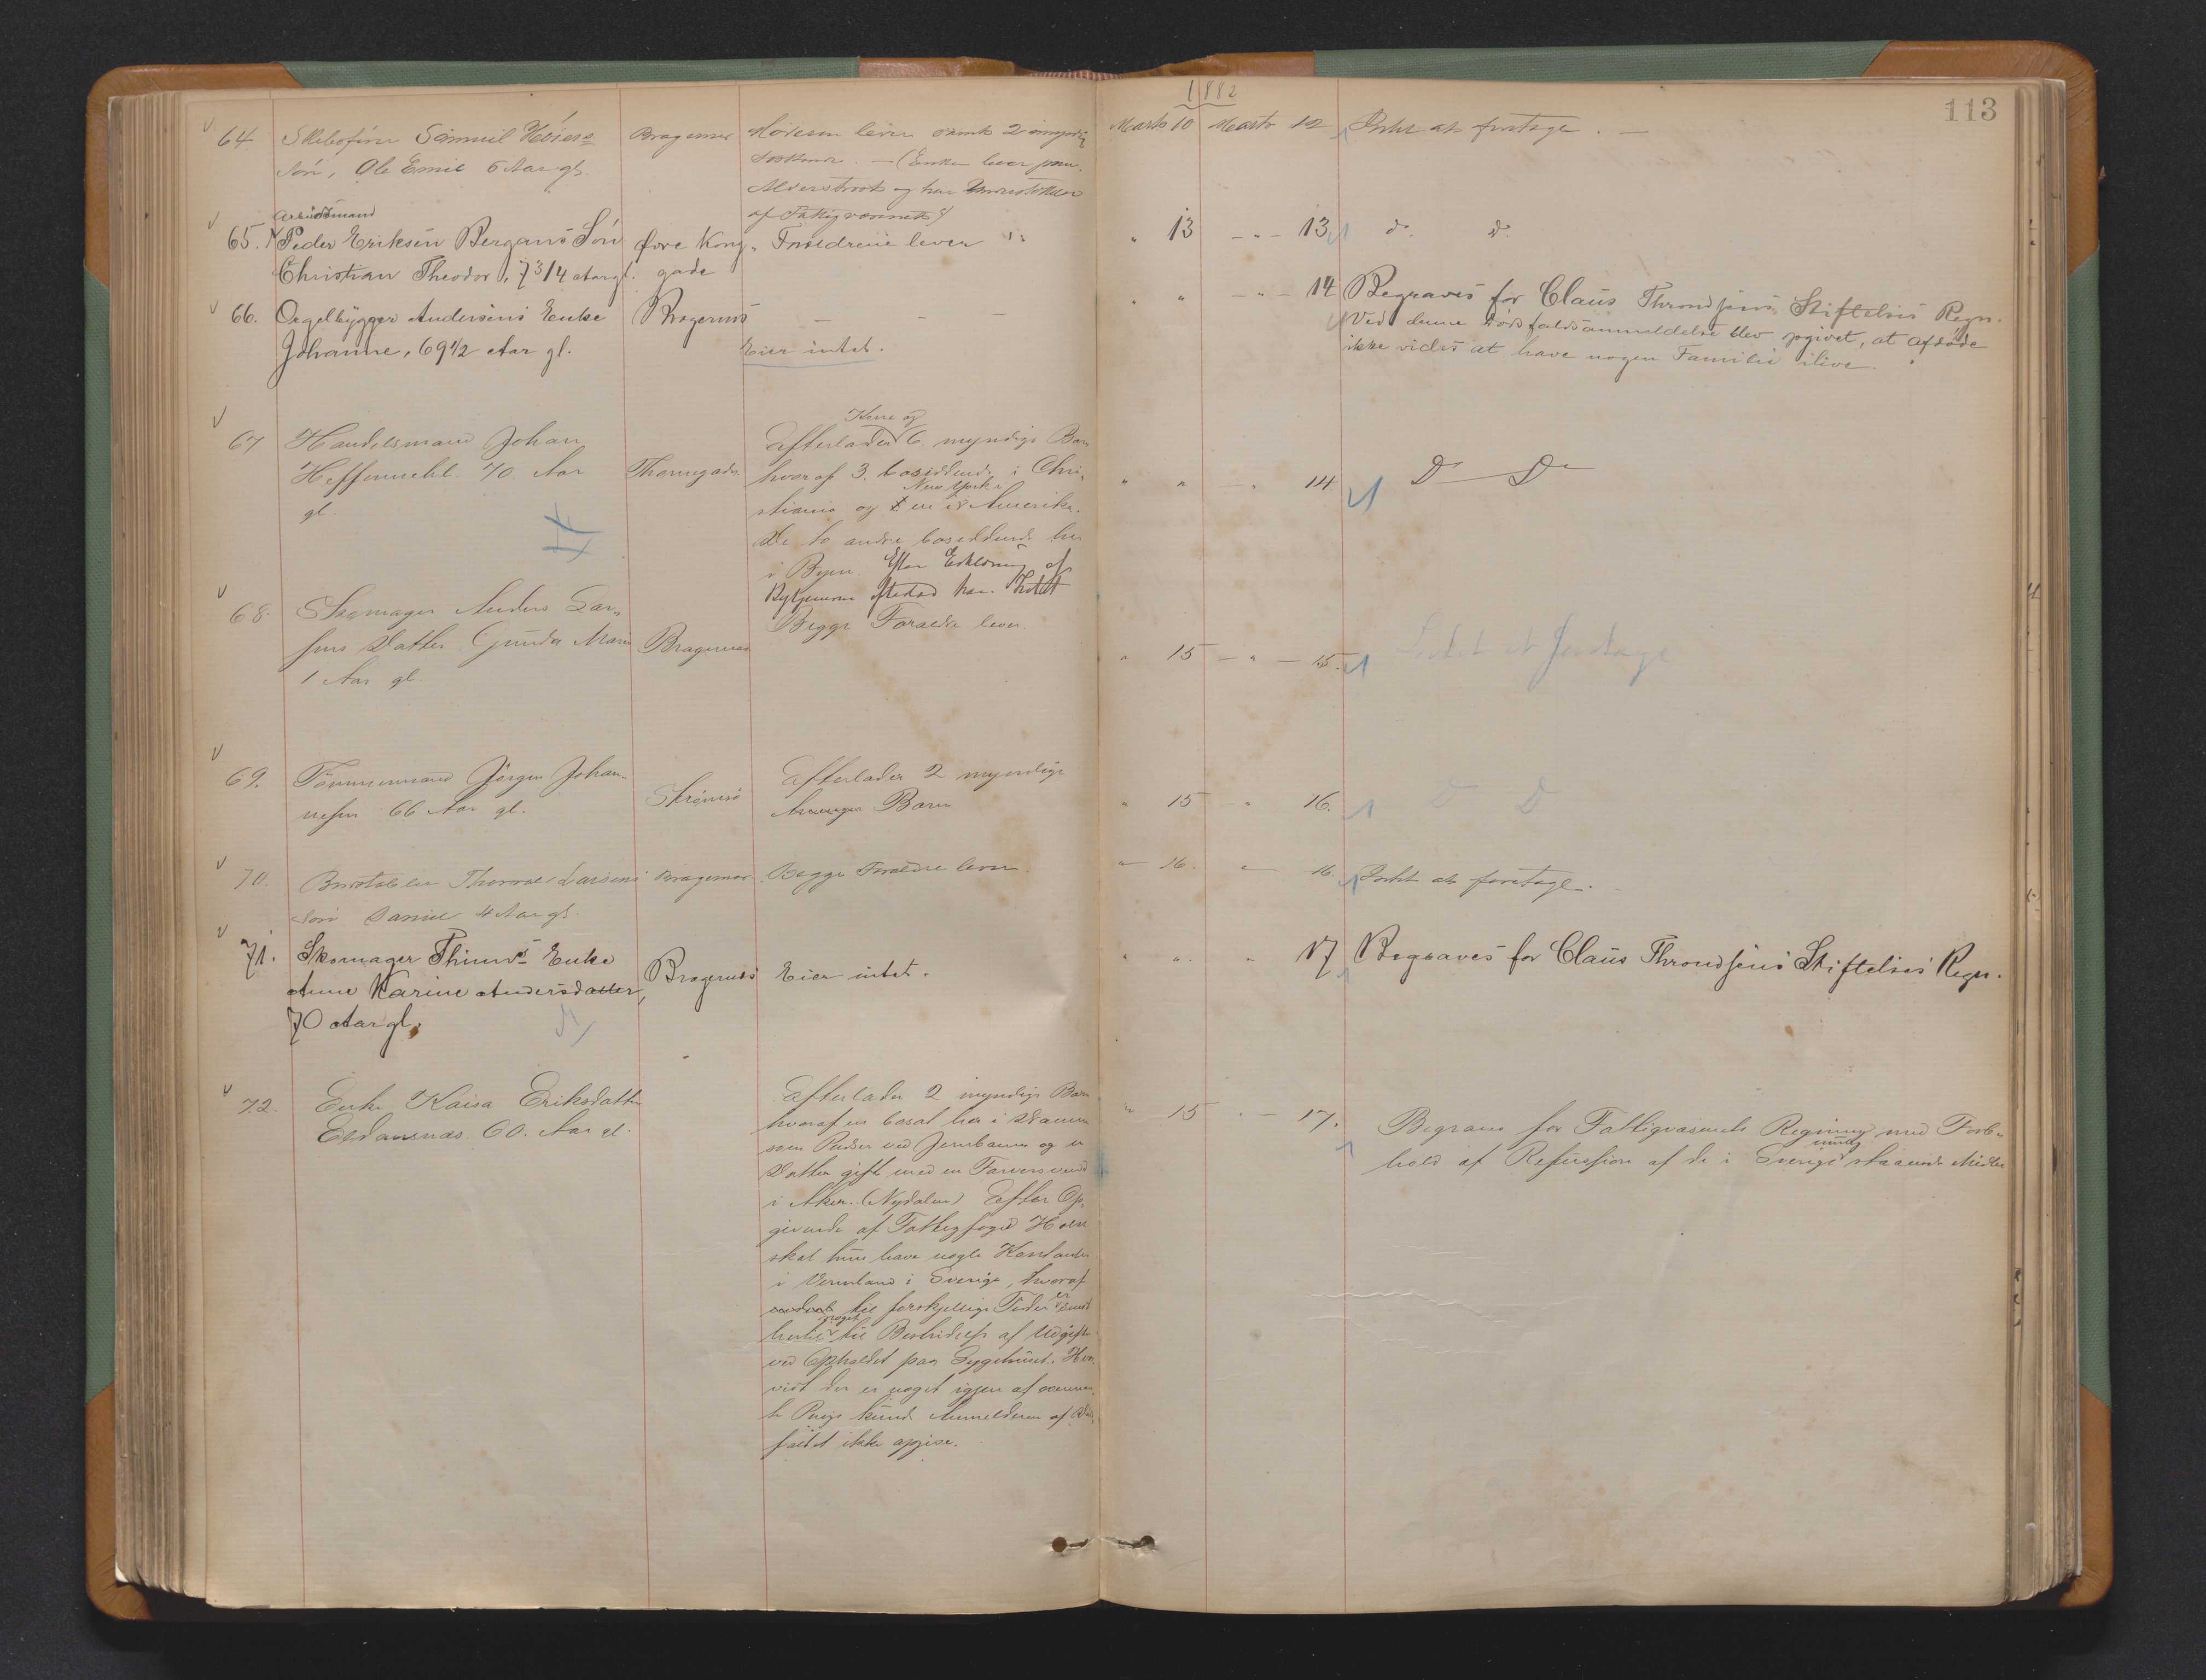 1882
113
64 Skibsfører Samuel Høiers Bragernes Moderen lever samt 2 umyndig Marts 10 Marts 12 Intet at foretage. —
Søn, Ole Emil 6 Aar gl. Søskende. — (Enken lever paa
Alderstrost og har Understøttelse
af Fattigvæsenet)
Arbeidsmand
65. Peder Eriksen Bergans Søn øvre Kong- Forældrene lever " 13 — " — 13 do. do.
Christian Theodor, 7 3/4 Aar gl. gade
66. Orgelbygger Andersens Enke Bragernes — — — " " — " — 14 Begraves for Claus Throndsens Stiftelses Regn.
Johanne, 69 1/2 Aar gl. Eier intet. Ved denne Dødsfaldsanmeldelse blev opgivet, at afdøde
ikke vides at have nogen Familie ilive.
Kone og
67 Handelsmand Johan Efterlader 6 myndige Børn
Heffermehl 70 Aar Thornegaden hvoraf 3 bosiddende i Chri- " " — " 14 Do — Do
gl. New York
stiania og en i Amerika.
De to andre bosiddende her
i Byen. Efter Erklæring af
afdød har Intet
68. Skomager Anders Lar- Begge Forældre lever.
sens Datter Gunda Marie Bragernes " 15 — " — 15. Intet at foretage
1 Aar gl.
69. Tømmermand Jørgen Johan- Strømsø Efterlader 2 myndige " 15 " 16. D D
nesen 66 Aar gl. Børn
70. Thorvald Larsens Bragernes Begge Forældre lever. " 16. " 16. Intet at foretage.
Søn Daniel 4 Aar gl.
71. Skomager Thims Enke Bragernes Eier intet. " " " 17 Begraves for Claus Throndsens Stiftelses Regn.
Anne Karine Andersdatter,
70 Aar gl.
72. Enke Kaisa Eriksdatter Efterlader 2 myndige Børn " 15 " — 17. Begraves for Fattigvæsenets Regning med Forbe-
Eldansnæs. 60. Aar gl. hvoraf en bosat her i hold af Refusion af de i Sverige staaende Midler
som Pudser ved Jernbanen og en
Datter gift med en
i Aker. (Nydalen) Efter Op-
givende af Fattigfoged Holm
skal hun have nogle Kontanter
i Vermland i Sverige, hvoraf
til forskjellige Tider er sendt
noget
hertil til Bestridelse af Udgifter
ved Opholdet paa Sygehuset. Hvor-
vidt der er noget igjen af
Penge kunde Anmelderen af Døds-
faldet ikke opgive.